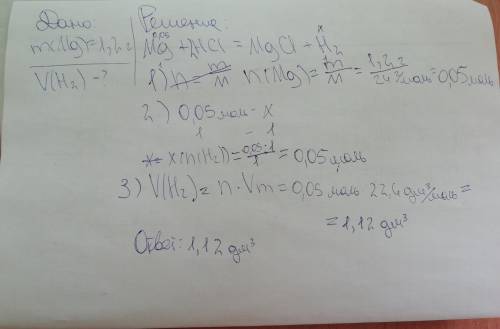 Дано:
Решение:
m(Mg)=1,2 г
V(H₂)-?
0,05 x
Mg + 2HCl = MgCl + H₂
1) n = m/M n(Mg) = m/M = 1,2 г/24 г/моль = 0,05 моль
2) 0,05 моль - x
1 - 1
x(n(H₂)) = 0,05·1/1 = 0,05 моль
3) V(H₂) = n·Vm = 0,05 моль 22,4 дм³/моль =
= 1,12 дм³
Ответ: 1,12 дм³